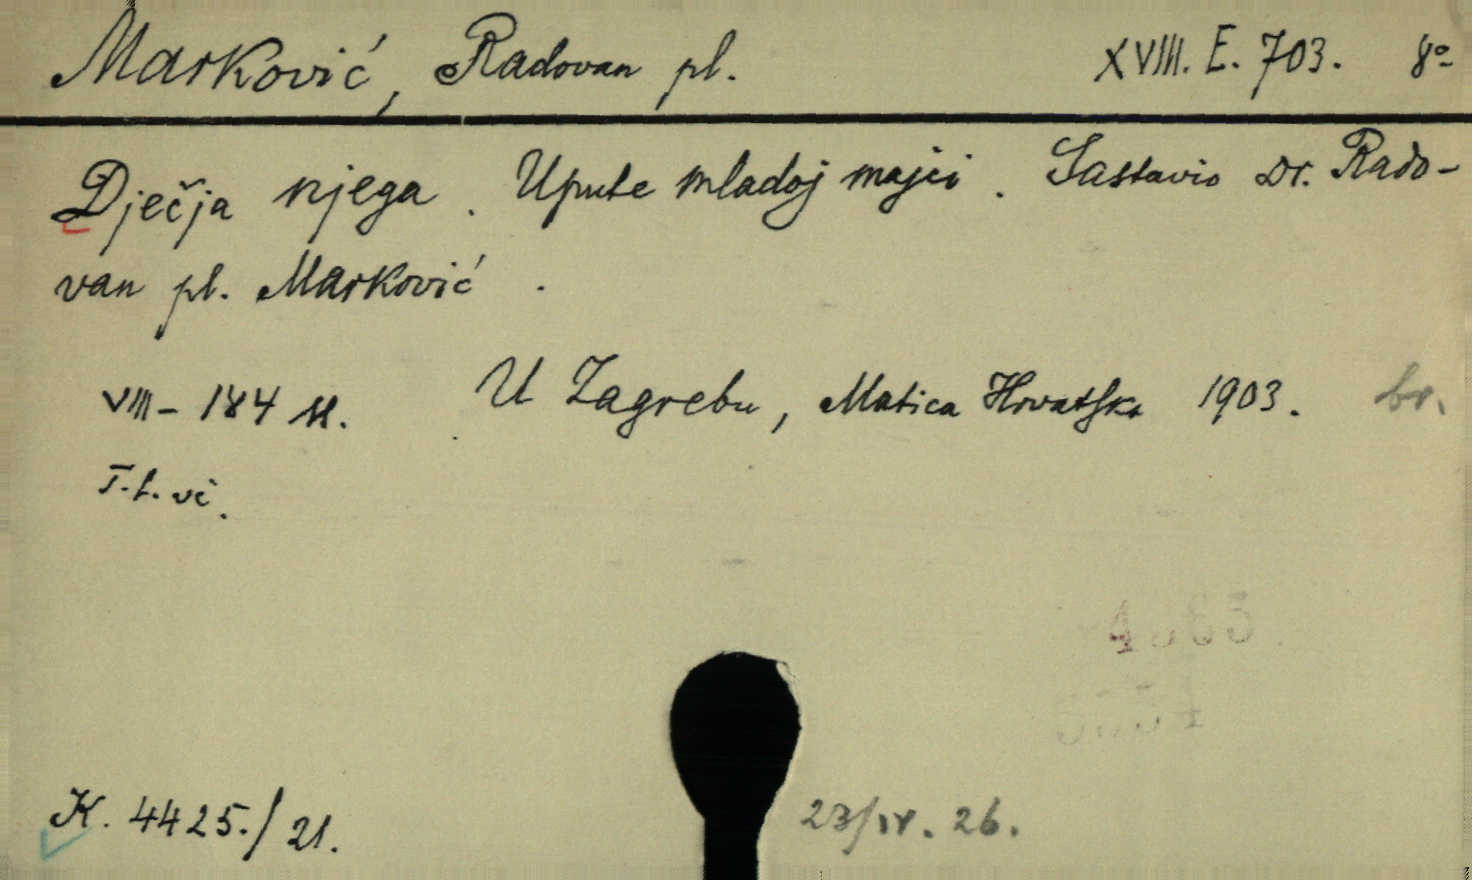 Marković, Radovan pl. XVIII. E. 703. 8º
Dječja njega. Upute mladoj majci. Sastavio Dr. Rado-
van pl. Marković.
VIII – 184 st. U Zagrebu, Matica Hrvatska 1903. br.
K. 4425./21. 23/IV. 26.